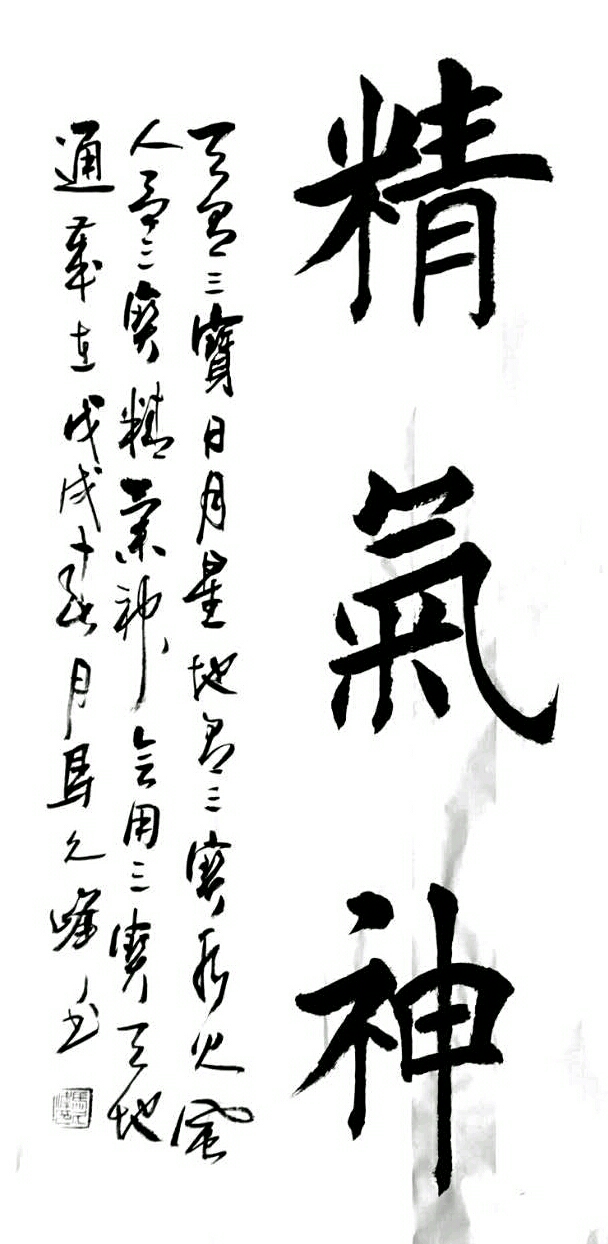 精氣神
天有三寶日月星地有三寶水火風
人有三寶精氣神会用三寶天地
通歲在戊戌十月馬峰书